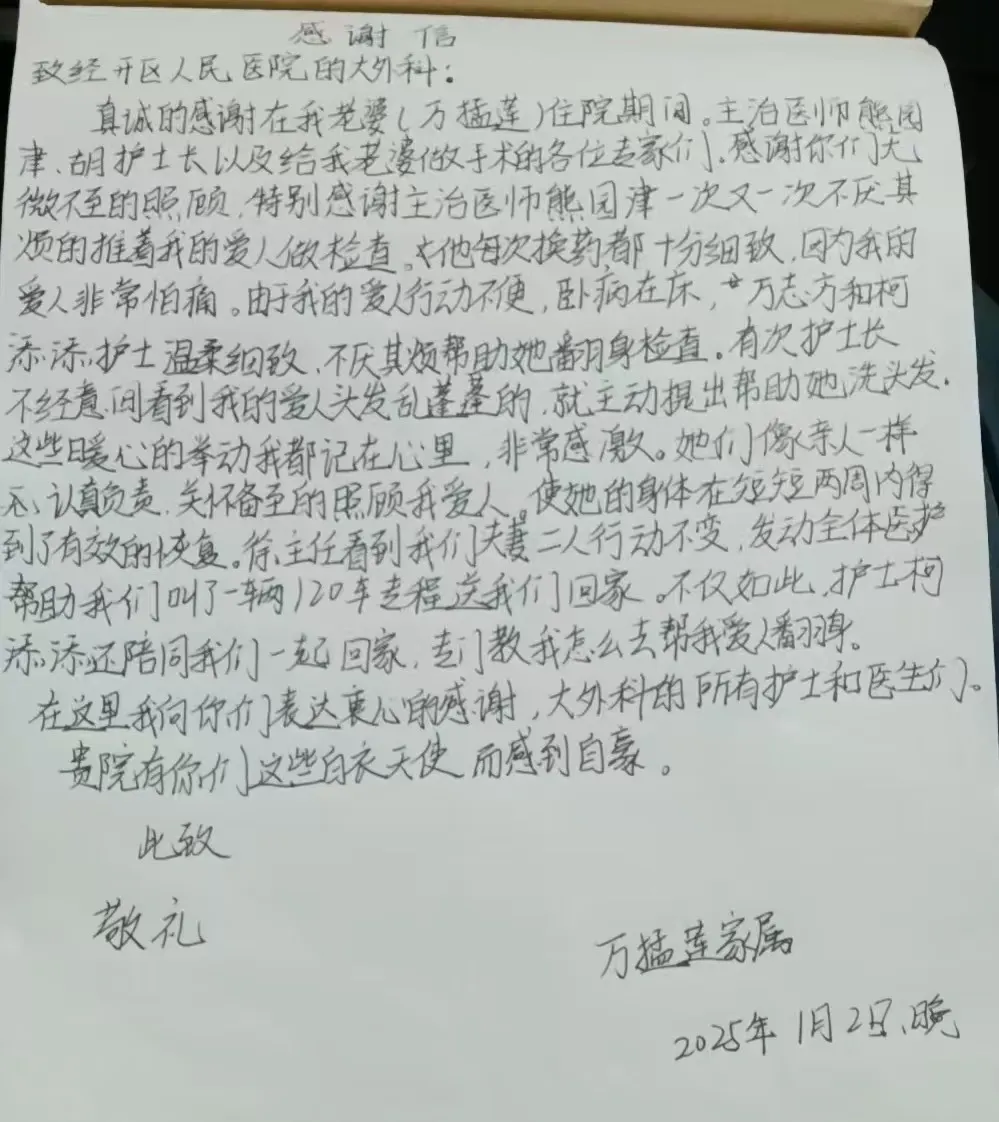 感谢信
致经开区人民医院的大外科：
真诚的感谢在我老婆（万猛莲）住院期间。主治医师熊园
津、胡护士长以及给我老婆做手术的各位专家们。感谢你们无
微不至的照顾，特别感谢主治医师熊园津一次又一次不厌其
烦的推着我的爱人做检查。他每次换药都十分细致，因为我的
爱人非常怕痛。由于我的爱人行动不便，卧病在床，万志方和柯
添添护士温柔细致、不厌其烦帮助她翻身检查。有次护士长
不经意间看到我的爱人头发乱蓬蓬的，就主动提出帮助她洗头发.
这些暖心的举动我都记在心里，非常感激。她们像亲人一样
认真负责、关怀备至的照顾我爱人。使她的身体在短短两周内得
到了有效的恢复。徐主任看到我们夫妻二人行动不变，发动全体医护
帮助我们叫了一辆120车专程送我们回家。不仅如此，护士柯
添添还陪同我们一起回家，专门教我怎么去帮我爱人翻身。
在这里我向你们表达衷心的感谢，大外科的所有护士和医生们。
贵院有你们这些白衣天使而感到自豪。
此致
敬礼
万猛莲家属
2025年1月2日、晚